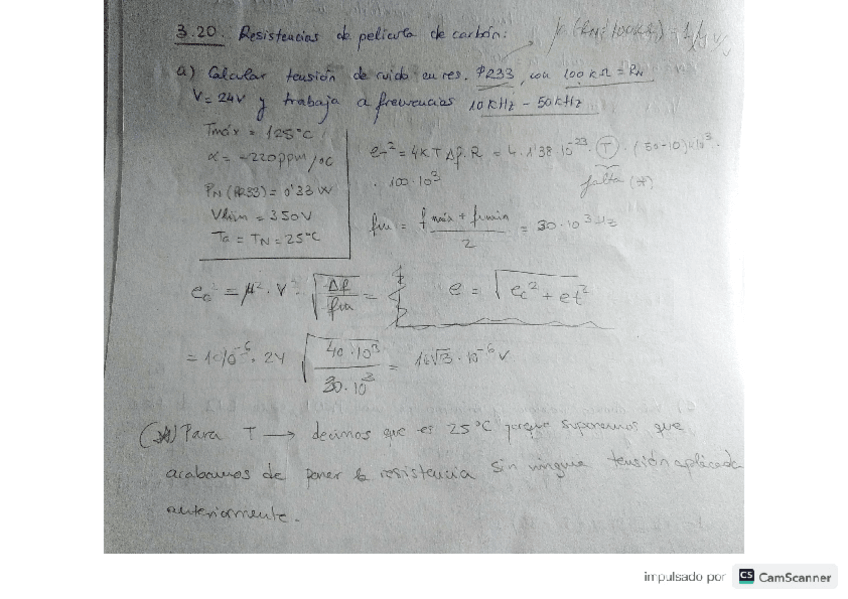 3.20. Resistencias de película de carbón:
a) Calcular tensión de ruido en res. PR33, con 100 kΩ = RN
V = 24V y trabaja a frecuencias 10 kHz - 50 kHz
Tmáx = 125°C
α = -220 ppm/°C
PN (PR33) = 0'33 W
Vlim = 350V
Ta = TN = 25°C
et² = 4KT Δf. R = 4. 1'38. 10⁻²³. T. (50-10)x10³.
. 100.10³
falta (*)
fm = fmáx + fmin / 2 = 30.10³ Hz
ec² = μ². V². √Δf/fm = e = √ec² + et²
= 10⁻⁶. 24 √40.10³/30.10³ = 16√3.10⁻⁶ V
(*) Para T → decimos que es 25°C porque suponemos que
acabamos de poner la resistencia sin ninguna tensión aplicada
anteriormente.
impulsado por CS CamScanner